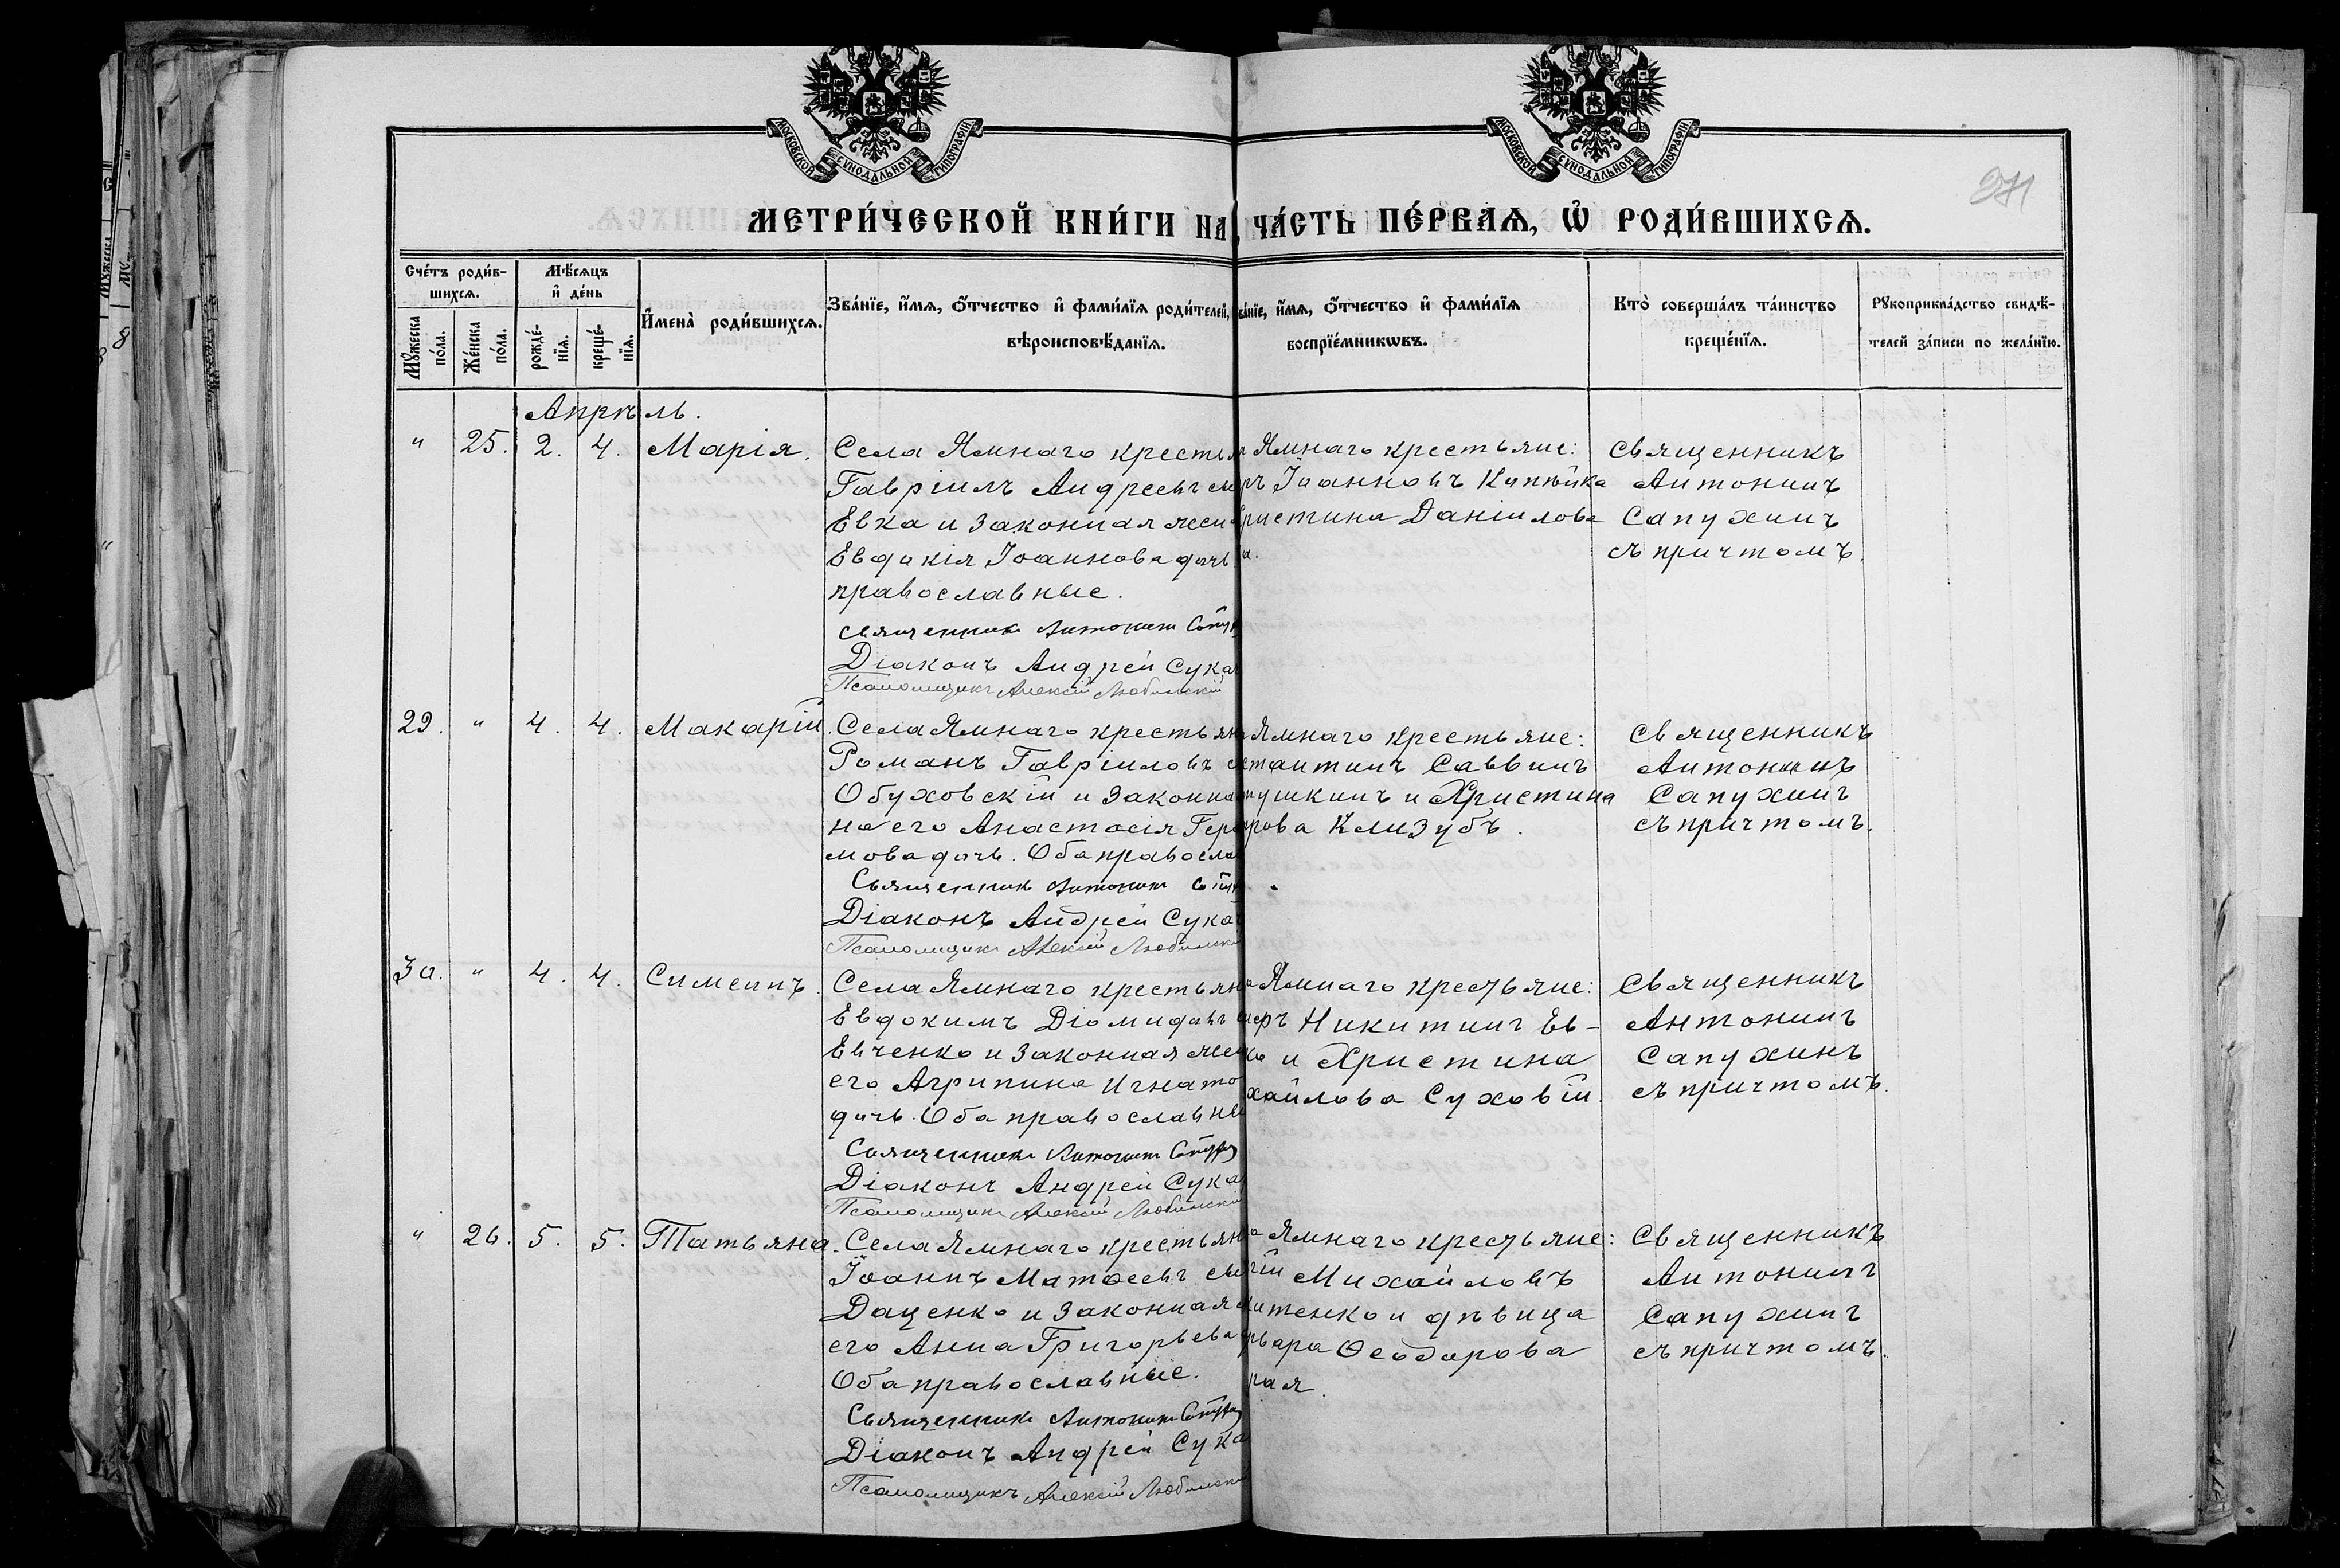 МОСКОВСКОЙ СѴНОДАЛЬНОЙ ТИПОГРАФІИ
МОСКОВСКОЙ СѴНОДАЛЬНОЙ ТИПОГРАФІИ
271
МЕТРИ́ЧЕСКОЙ КНИ́ГИ НА
ЧА́СТЬ ПЕ́РВАѦ, Ѽ РОДИ́ВШИХСѦ.
Сче́тъ роди́в-
шихсѧ.
Мꙋжеска по́ла.
Же́нска по́ла.
Мѣ́сѧцъ
и҆ де́нь
рожде́-
нїѧ.
креще́-
нїѧ.
И҆мена̀ роди́вшихсѧ.
Зва́нїе, и҆́мѧ, ѻ҆́тчество и҆ фами́лїѧ роди́телей,
вѣроисповѣ́данїѧ.
ва́нїе, и҆́мѧ, ѻ҆́тчество и҆ фами́лїѧ
воспрїе́мникѡвъ.
Кто̀ соверша́лъ та́инство
креще́нїѧ.
Рꙋкоприкла́дство свидѣ́-
телей за́писи по жела́нїю.
Апрѣль.
" 25. 2. 4. Марія.
Села Ямнаго крестья
Гавріилъ Андреевъ
Евка и законная жен
Евдокія Іоаннова дочь
православные.
Священникъ Антонин
Діаконъ Андрей Сука
Псаломщикъ Алексій Любимскій
Ямнаго крестьяне:
ръ Іоанновъ
ристина Даніилова
а.
Священникъ
Антонинъ
Сапухинъ
съ причтомъ.
29. " 4. 4. Макарій
Села Ямнаго крестьян
Романъ Гавріиловъ с
Обуховскій и законна
на его Анастасія Гера
мова дочь. Оба правосла
Священник Антонин
Діаконъ Андрей Сука
Псаломщикъ Алексій Любимски
Ямнаго крестьяне:
стантинъ Саввинъ
тушкинъ и Христина
рова Клизубъ.
Священникъ
Антонинъ
Сапухинъ
съ причтомъ.
30. " 4. 4. Симеонъ.
Села Ямнаго крестьян
Евдокимъ Діомидовъ
Евченко и законная жен
его Агрипина Игнато
дочь. Оба православны
Священникъ Антонин
Діаконъ Андрей Сука
Псаломщикъ Алексій Любимскій
Ямнаго крестьяне:
Никитинъ Ев-
ко и Христина
хайлова Суховій.
Священникъ
Антонинъ
Сапухинъ
съ причтомъ.
" 26. 5. 5. Татьяна.
Села Ямнаго крестьян
Іоаннъ Матѳеевъ сы
Даценко и законная
его Анна Григорьева
Оба православные.
Священникъ Антонин
Діаконъ Андрей Сука
Псаломщикъ Алексій Любимски
Ямнаго крестьяне:
гій Михайловъ
итенко и дѣвица
рвара Ѳеодорова
рая.
Священникъ
Антонинъ
Сапухинъ
съ причтомъ.